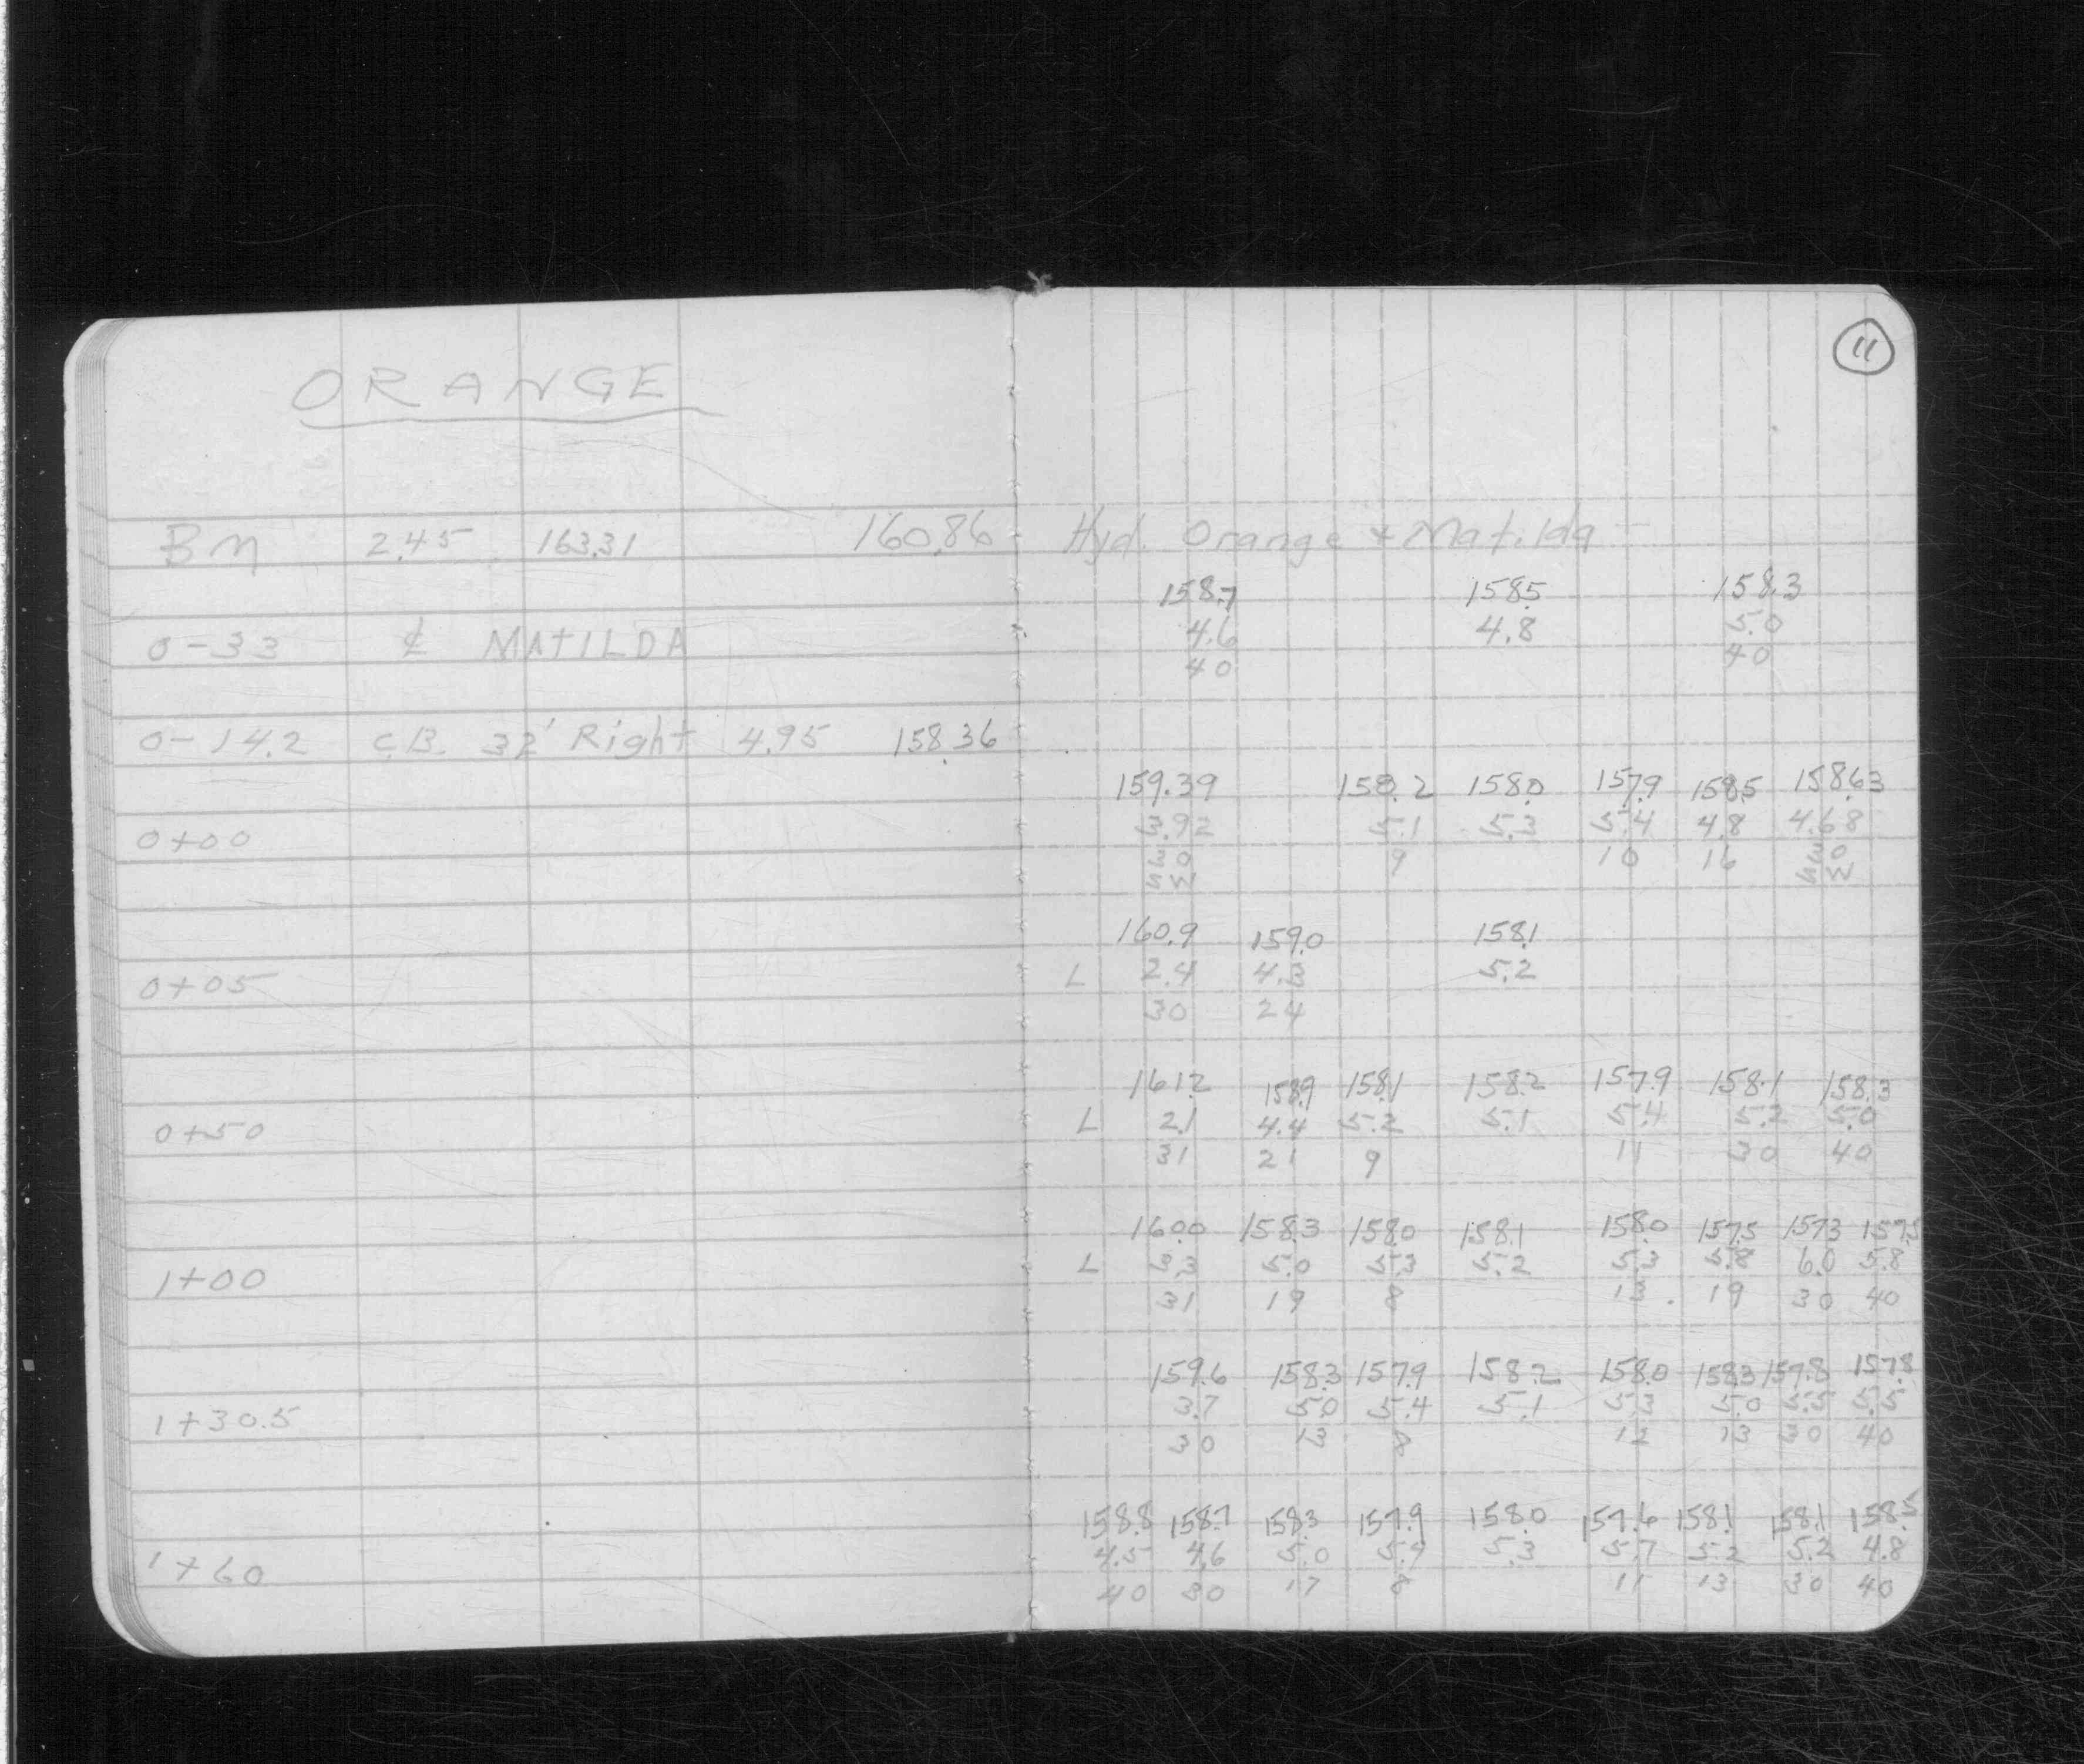 11
ORANGE
BM 2.45 163.31 160.86 Hyd. Orange & Matilda
158.7 158.5 158.3
0-33 ₵ MATILDA 4.6 4.8 5.0
40 40
0-14.2 C.B. 32' Right 4.95 158.36
159.39 158.2 158.0 157.9 158.5 158.63
0+00 3.92 5.1 5.3 5.4 4.8 4.68
30 9 10 16 30
SW SW
160.9 159.0 158.1
0+05 L 2.4 4.3 5.2
30 24
161.2 158.9 158.1 158.2 157.9 158.1 158.3
0+50 L 2.1 4.4 5.2 5.1 5.4 5.2 5.0
31 21 9 11 30 40
160.0 158.3 158.0 158.1 158.0 157.5 157.3 157.5
1+00 L 3.3 5.0 5.3 5.2 5.3 5.8 6.0 5.8
31 19 8 13 19 30 40
159.6 158.3 157.9 158.2 158.0 158.3 157.8 157.8
1+30.5 3.7 5.0 5.4 5.1 5.3 5.0 5.5 5.5
30 13 8 12 13 30 40
158.8 158.7 158.3 157.9 158.0 157.6 158.1 158.1 158.5
1+60 4.5 4.6 5.0 5.4 5.3 5.7 5.2 5.2 4.8
40 30 17 8 11 13 30 40